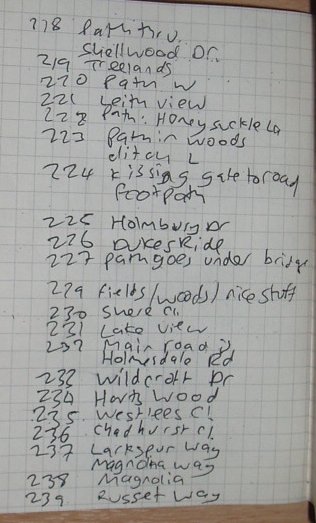 218 Path thru
Shellwood Dr.
219 Treelands
220 Path W
221 Leith view
222 Path. Honeysuckle La
223 path in woods
ditch L
224 kissing gate to road
footpath
225 Holmbury Dr
226 Dukes Ride
227 path goes under bridge
229 fields/woods/nice stuff
230 Shere Cl.
231 Lake View
232 Main road is
Holmesdale Rd
233 Wildcroft Dr
234 Harts Wood
235. Westlees Cl.
236 Chadhurst Cl.
237 Larkspur Way
Magnolia Way
238 Magnolia
239 Russet Way